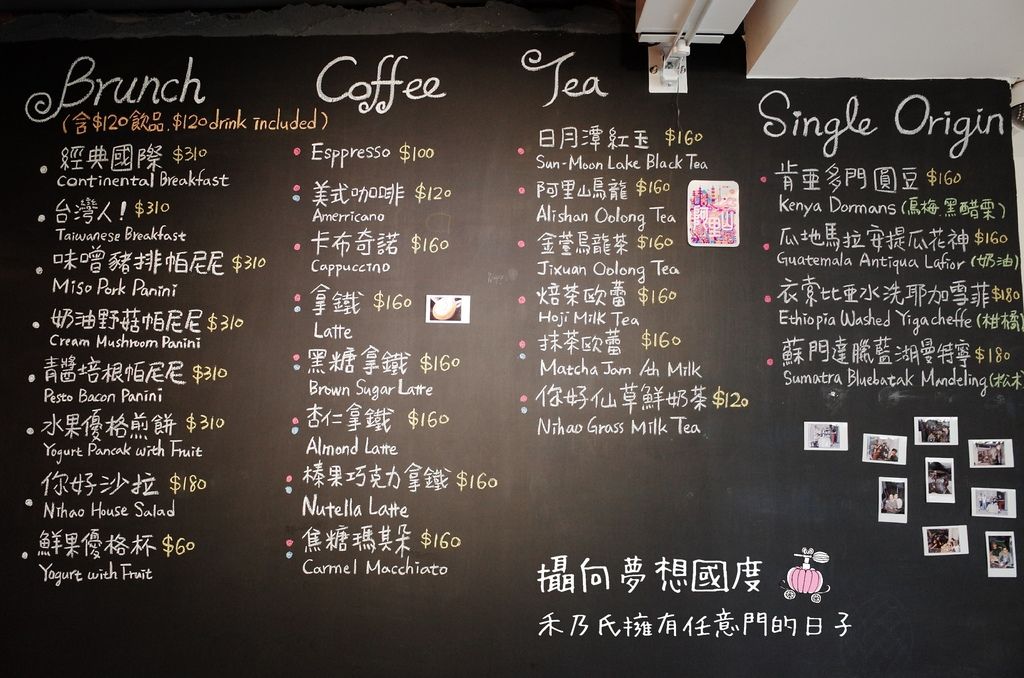 Brunch
(含$120飲品.$120drink included)
經典國際 $310
Continental Breakfast
台灣人! $310
Taiwanese Breakfast
味噌豬排帕尼尼 $310
Miso Pork Panini
奶油野菇帕尼尼 $310
Cream Mushroom Panini
青醬培根帕尼尼 $310
Pesto Bacon Panini
水果優格煎餅 $310
Yogurt Pancak with Fruit
你好沙拉 $180
Nihao House Salad
鮮果優格杯 $60
Yogurt with Fruit
Coffee
Esppresso $100
美式咖啡 $120
Amerricano
卡布奇諾 $160
Cappuccino
拿鐵 $160
Latte
黑糖拿鐵 $160
Brown Sugar Latte
杏仁拿鐵 $160
Almond Latte
榛果巧克力拿鐵 $160
Nutella Latte
焦糖瑪其朵 $160
Carmel Macchiato
Tea
日月潭紅玉 $160
Sun-Moon Lake Black Tea
阿里山烏龍 $160
Alishan Oolong Tea
金萱烏龍茶 $160
Jixuan Oolong Tea
焙茶歐蕾 $160
Hoji Milk Tea
抹茶歐蕾 $160
Matcha Jom Ah Milk
你好仙草鮮奶茶 $120
Nihao Grass Milk Tea
Single Origin
肯亞多門圓豆 $160
Kenya Dormans (烏梅.黑醋栗)
瓜地馬拉安提瓜花神 $160
Guatemala Antiqua Lafior (奶油)
衣索比亞水洗耶加雪菲 $180
Ethiopia Washed Yigacheffe (柑橘)
蘇門達臘藍湖曼特寧 $180
Sumatra Bluebatak Mandeling (松木
攝向夢想國度
禾乃氏擁有任意門的日子